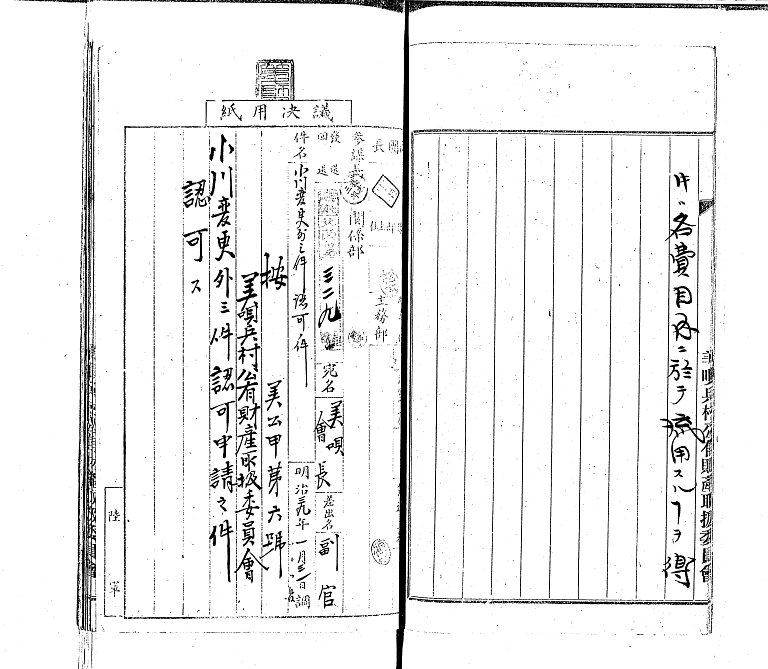 廾八各費目內ニ於テ流用スルヿヲ得
美唄兵村公有財産取扱委員會
議決用紙
參謀
關係部
主務部
發送
三二九
宛名
美唄
會長
差出名
副官
件名
小川変更外三件認可ノ件
明治三九年一月三一日調
按
美公甲第六號
美唄兵村公有財産取扱委員會
小川変更外三件認可申請之件
認可ス
陸軍